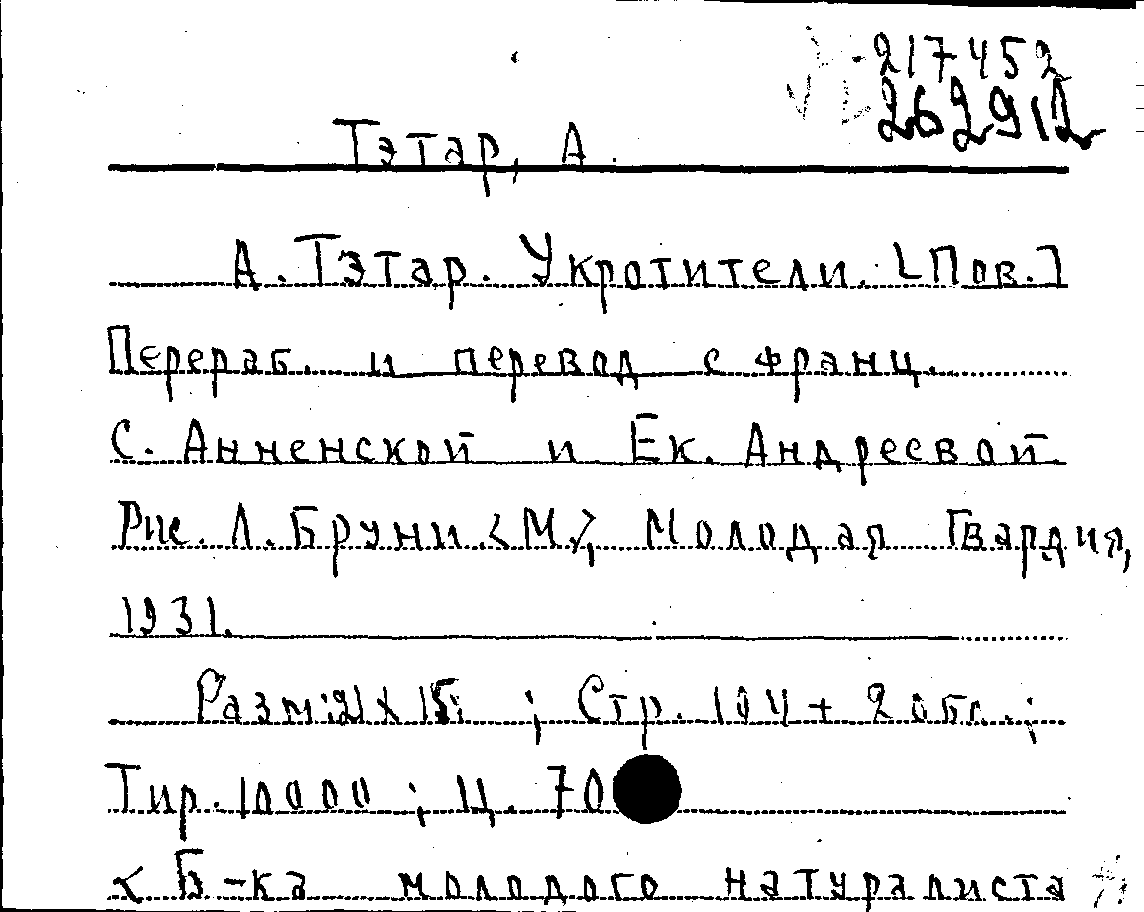 217452
262912
Тэтар, А.
А. Тэтар. Укротители. [Пов.]
Перераб. и перевод с франц.
С. Анненской и Ек. Андреевой.
Рис. Л. Бруни. <М.>, Молодая Гвардия,
1931.
Разм: 21 x 15; ; Стр. 104 + 2 обл. ;
Тир. 10000 ; Ц. 70
< Б-ка молодого натуралиста